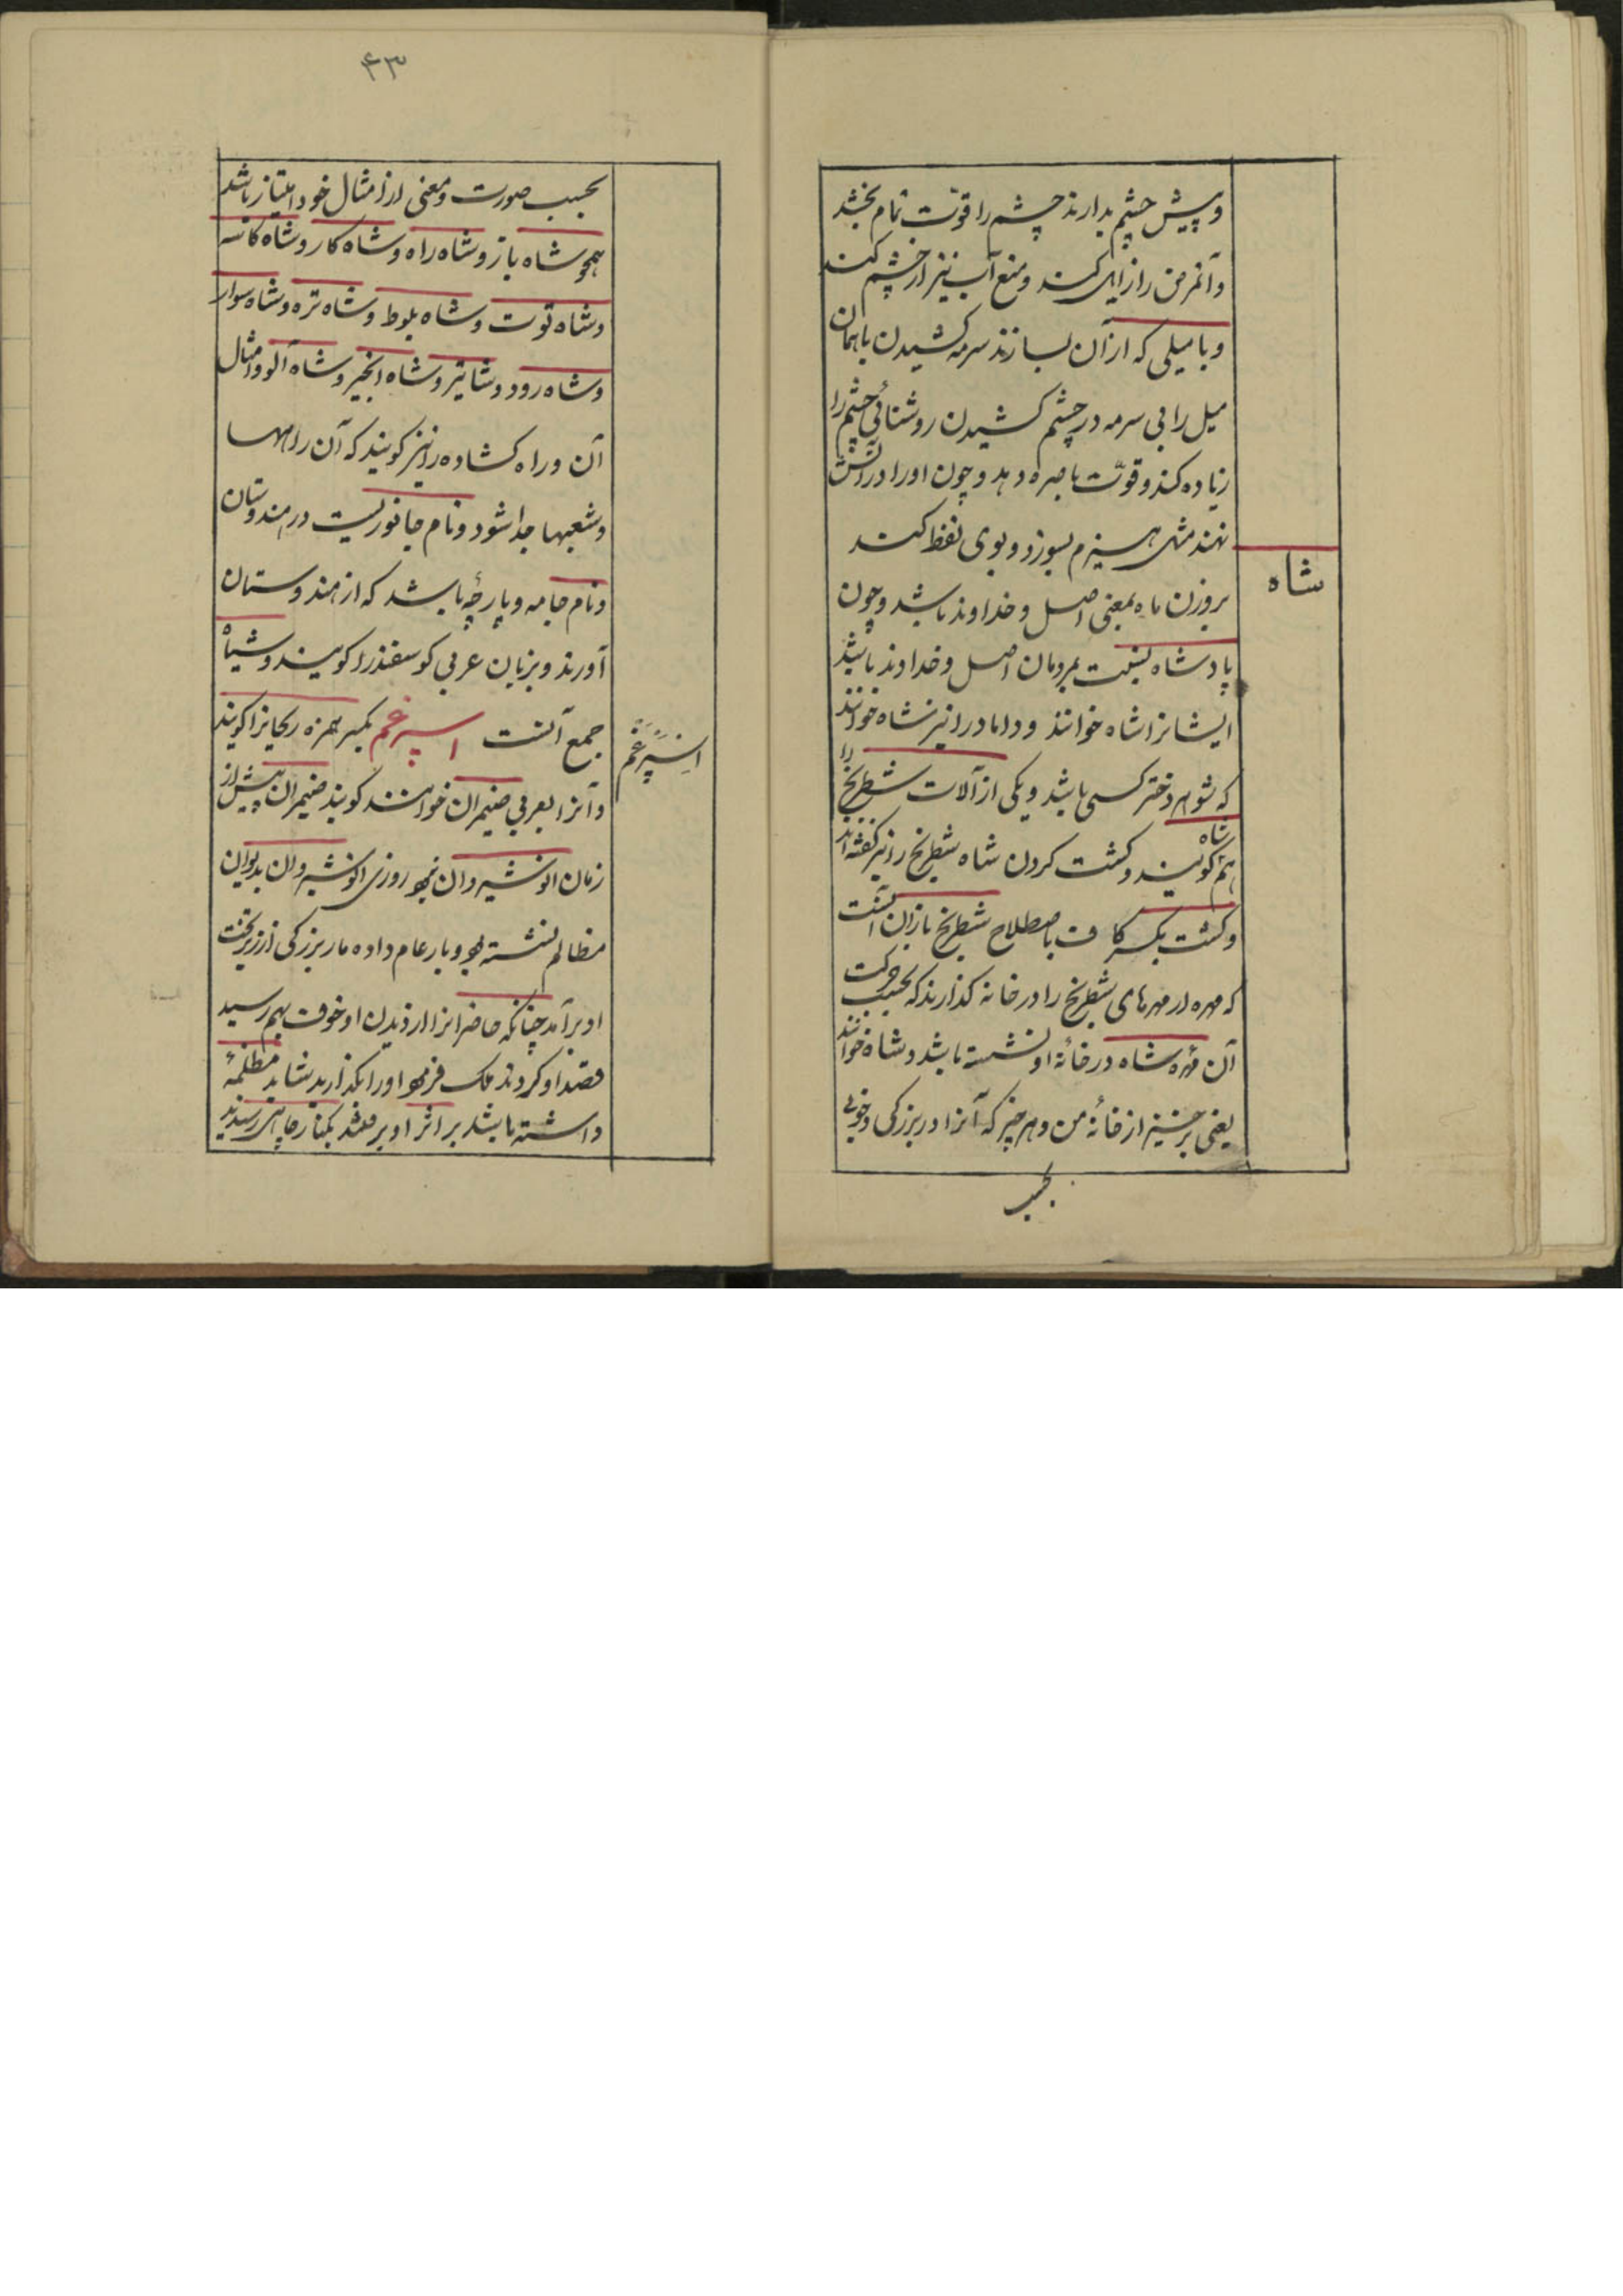 و پیش چشم بدارند چشم را قوّت تمام بخشد
و آنمرض را زایل کند و منع آب نیز از چشم کند
و با میلی که از آن بسازند سرمه کشیدن یا همان
میل را بی سرمه در چشم کشیدن روشنائی چشم را
زیاده کند و قوّت باصره دهد و چون او را در آتش
نهند مثل هیزم بسوزد و بوی نفط کند
شاه
بروزن ماه بمعنی اصل و خداوند باشد و چون
پادشاه نسبت بمردمان اصل و خداوند باشد
ایشانرا شاه خوانند و داماد را نیز شاه خوانند
که شوهر دختر کسی باشد و یکی از آلات شطرنج را
هم شاه کویند و کشت کردن شاه شطرنج را نیز کفته اند
و کشت بکسر کاف باصطلاح شطرنج بازان آنست
که مهره از مهرهای شطرنج را در خانه کذارند که بحسب حرکت
آن مهره شاه در خانهٔ او نشسته باشد و شاه خوانند
یعنی برخیز از خانهٔ من و هر چیز که آنرا در بزرکی و خوبی
بحسب
۴۳
بحسب صورت و معنی از امثال خود امتیاز باشد
همچو شاه باز و شاه راه و شاه کار و شاه کاسه
و شاه توت و شاه بلوط و شاه تره و شاه سوار
و شاه رود و شاتیر و شاه انجیر و شاه آلو و امثال
آن و راه کشاده را نیز کویند که آن راهها
و شعبها جدا شود و نام جانوریست در هندوستان
و نام جامه و پارچهٔ باشد که از هندوستان
آورند و بزبان عربی کوسفند را کویند و شیاه
جمع آنست اسپرغم بکسر همزه ریحانرا کویند
اسپرغم
و آنرا بعربی ضیمران خوانند کویند ضیمران پیش از
زمان انوشیروان نبود روزی انوشیروان بدیوان
مظالم نشسته بود و بار عام داده مار بزرکی از زیر تخت
او برآمد چنانکه حاضرانرا از دیدن او خوف بهم رسید
قصد او کردند ملک فرمود او را بکذارید شاید مظلمهٔ
داشته باشد بر اثر او برفتند بکنار چاهی رسیدند